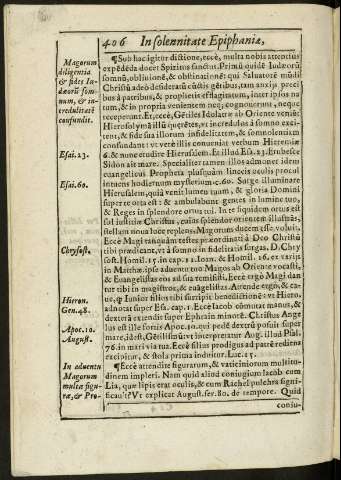 406 In solennitate Epiphaniæ,
Magorum
diligentia
& fides Iu-
dæorũ som-
num, & in-
credulitatẽ
confundit.
Esai.23.
Esai.60.
Chrysost.
Hieron.
Gen.48.
Apoc.10.
August.
In aduentu
Magorum
multæ figu-
ræ, & Pro-
¶Sub hac igitur dictione, eccè, multa nobis attentius
expẽdẽda docet Spiritus sanctus. Primũ quidẽ Iudæorũ
somnũ, obliuionẽ, & obstinationẽ: qui Saluatorẽ mũdi
Christũ adeò desideratũ cũctis gẽtibus, tam anxijs preci
bus à patribus, & prophetis efflagitatum, inter ipsos na
tum, & in propria venientem neq; cognouerunt, neque
receperunt. Et, eccè, Gẽtiles Idolatræ ab Oriente veniẽt
Hierosolymã illũ quęrẽtes, vt in credulos à somno exci-
tent, & fide sua illorum infidelitatem, & somnolentiam
confundant: vt verè illis conueniat verbum Hieremiæ
6. & nunc etudire Hierusalem. Et illud Esa.23. Erubesce
Sidon ait mare. Specialiter tamen illos admonet idem
euangelicus Propheta plusquàm linceis oculis procul
intuens hodiernum mysterium c.60. Surge illuminare
Hierusalem, quià venit lumen tuum, & gloria Domini
super te orta est: & ambulabunt gentes in lumine tuo,
& Reges in splendore ortus tui. In te siquidem ortus est
sol iustitiæ Christus, cuius splendor orientem illustrãs,
stellam noua luce repleus, Magorum ducem esse voluit.
Eccè Magi tanquàm testes præordinati à Deo Christũ
tibi prædicant, vt à somno in fidelitatis surgas. D. Chry
sost. Homil.15. in cap.12. Ioan. & Homil. 16. ex varijs
in Matthæ. ipse aduenit tuo Magos ab Oriente vocasti,
& Euangelistas eos ad sua remisisti. Eccè ergo Magi dan
tur tibi in magistros, & euãgelistas. Attende ergò, & ca-
ue, ꝙ Iunior filius tibi surripit benedictionẽ: vt Hiero.
adnotat super Esa. cap.1. Eccè Iacob cõmutat manus, &
dexterã extendit super Ephraim minorẽ. Christus Ange
lus est ille fortis Apoc.10. qui pedẽ dextrũ posuit super
mare, idest, Gẽtilismũ vt interpretatur Aug. illud Psal.
76. in mari via tua. Eccè filius prodigus ad patrẽ rediens
excipitur, & stola prima induitur. Luc.15.
¶Eccè attendite figurarum, & vaticiniorum multitu-
dinem impleri. Nam quid aliud coniugium Iacob cum
Lia, quæ lipis erat oculis, & cum Rachel pulchra signi-
ficauit? Vt explicat August. ser.80. de tempore. Quid
coniu-